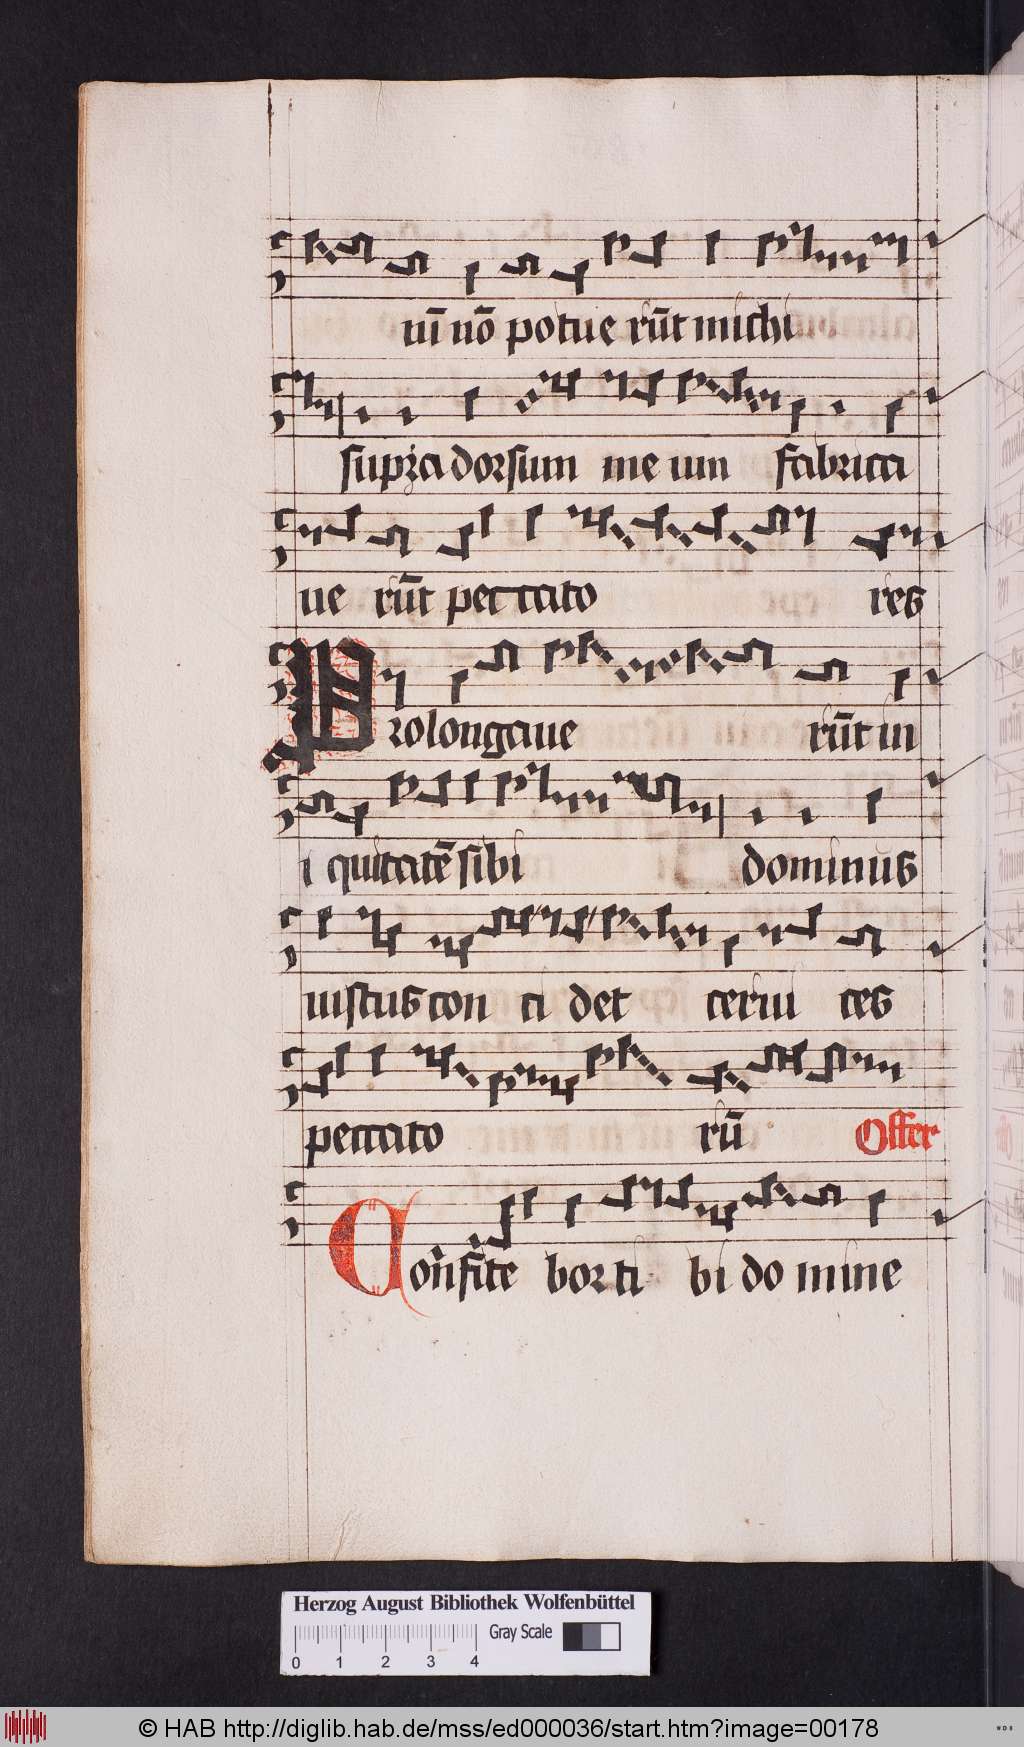 nī nō potue rūt michi
supra dorsum me um fabrica
ue rūt peccato res
Prolongaue rūt in
i quitatē sibi dominus
iustus con ci det cerui ces
peccato rū Offer
Confite bor ti bi do mine
Herzog August Bibliothek Wolfenbüttel
Gray Scale
0 1 2 3 4
© HAB http://diglib.hab.de/mss/ed000036/start.htm?image=00178